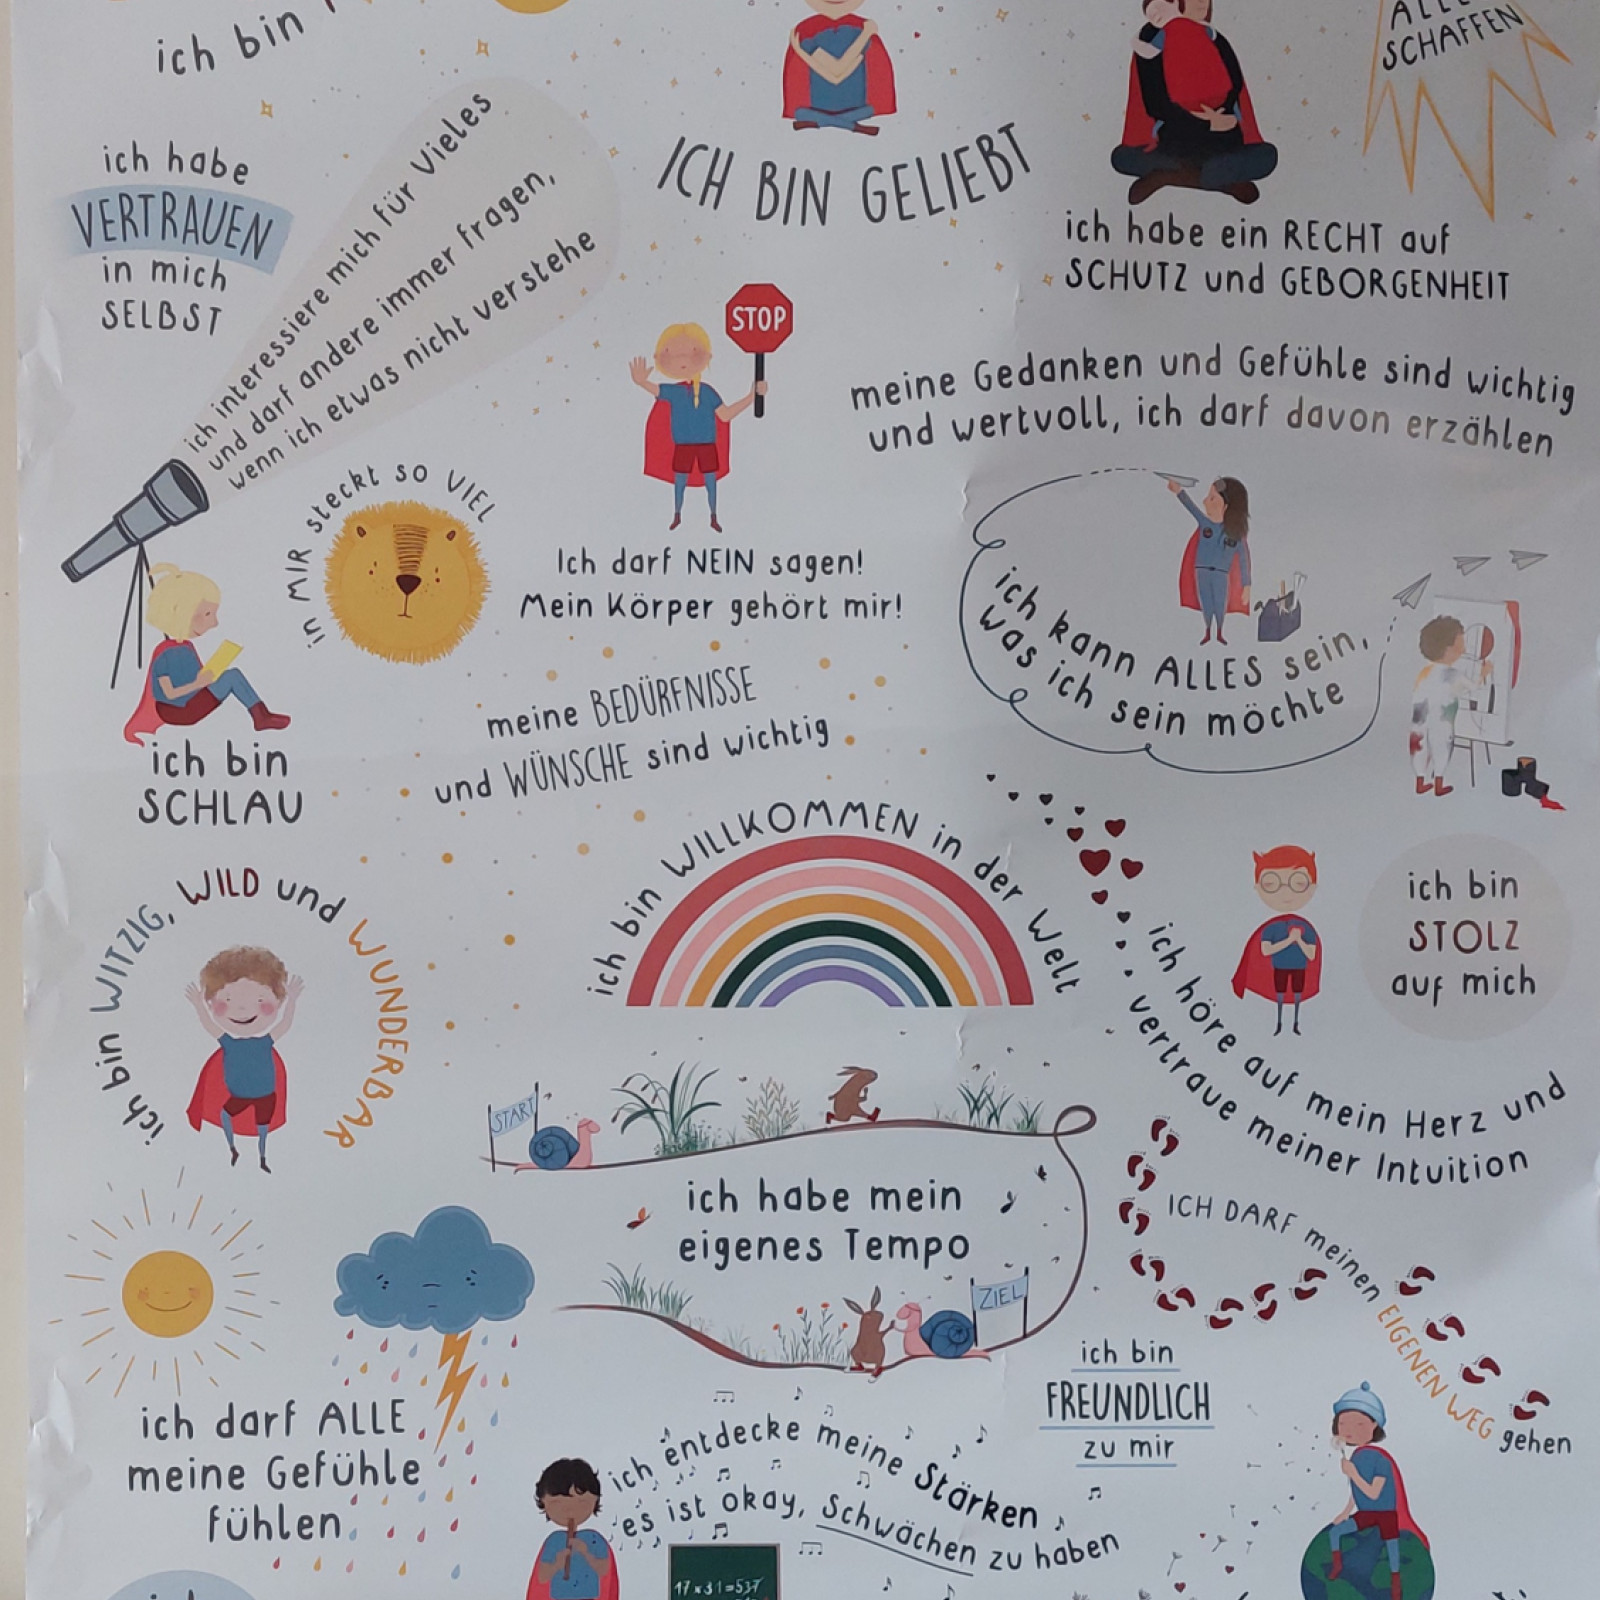 ich bin
ALLES
SCHAFFEN
ich habe
VERTRAUEN
in mich
SELBST
ich interessiere mich für Vieles
und darf andere immer fragen,
wenn ich etwas nicht verstehe
ICH BIN GELIEBT
ich habe ein RECHT auf
SCHUTZ und GEBORGENHEIT
STOP
meine Gedanken und Gefühle sind wichtig
und wertvoll, ich darf davon erzählen
in MIR steckt so VIEL
Ich darf NEIN sagen!
Mein Körper gehört mir!
ich kann ALLES sein,
was ich sein möchte
ich bin
SCHLAU
meine BEDÜRFNISSE
und WÜNSCHE sind wichtig
ich bin WILLKOMMEN in der Welt
ich bin WITZIG, WILD und WUNDERBAR
ich bin
STOLZ
auf mich
ich höre auf mein Herz und
vertraue meiner Intuition
START
ich habe mein
eigenes Tempo
ZIEL
ICH DARF meinen EIGENEN WEG gehen
ich darf ALLE
meine Gefühle
fühlen
ich bin
FREUNDLICH
zu mir
ich entdecke meine Stärken
es ist okay, Schwächen zu haben
17x31=537